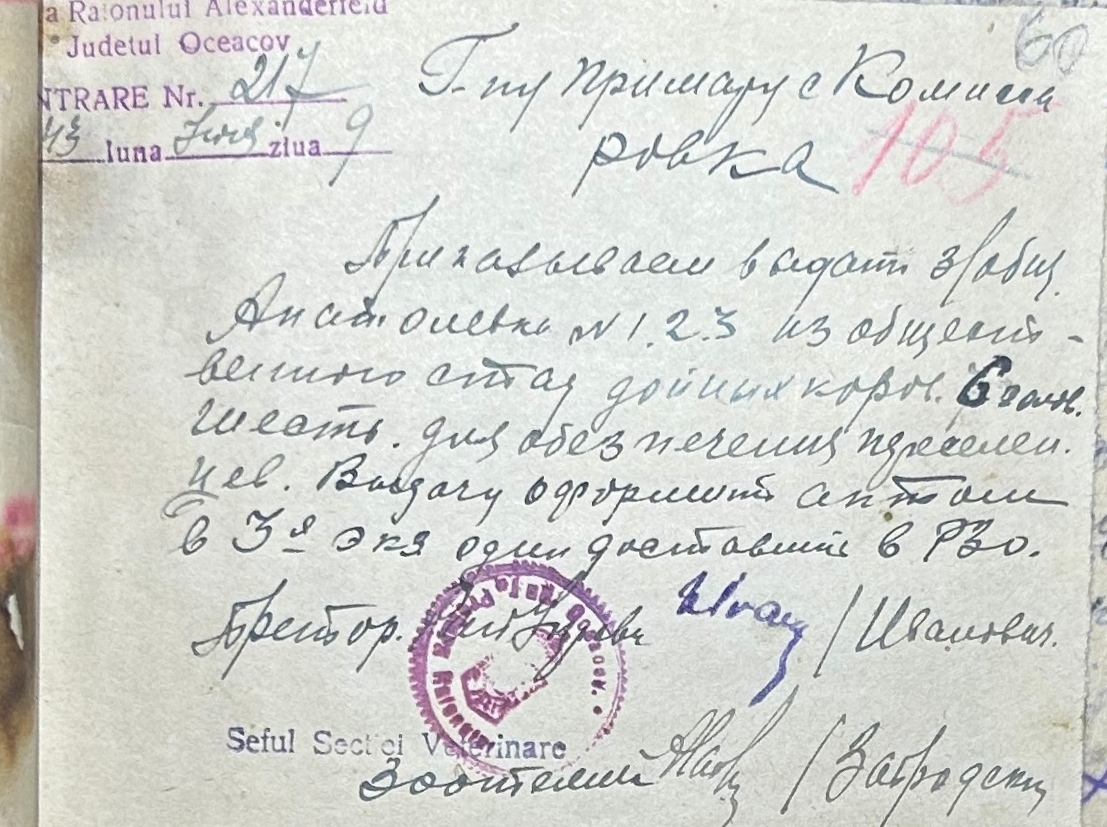 a Raionului Alexanderfeld
Judetul Oceacov
NTRARE Nr. 217
43 luna ziua 9
60
Г-ну Примару с Комиса
ровка
105
Приказываем выдать з/общ.
Анатолевка N 1.2.3 из обществ-
венного стад дойных коров. 6 голов.
шесть. для обезпечения пересelen.
цев. Выдачу оформить актом
в 3х экз один доставить в РЗО.
Претор. /Иванович.
Seful Sectiei Veterinare
Зоотехник /Забродский